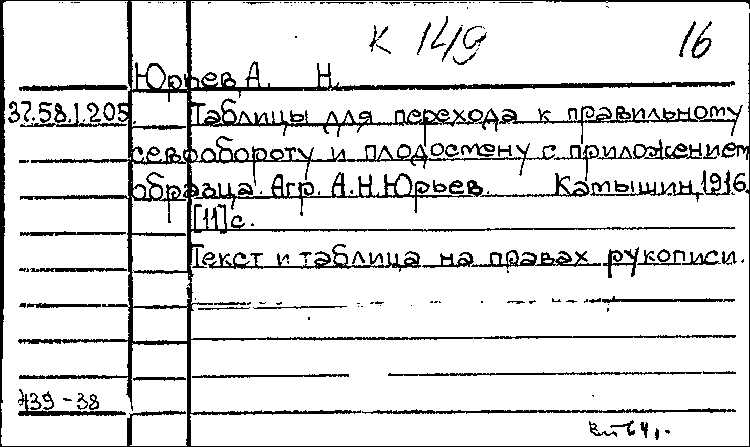 К 149 16
Юрьев, А. Н.
37.58.1.205 Таблицы для перехода к правильному
севообороту и плодосмену с приложением
образца. Агр. А.Н.Юрьев. Камышин, 1916.
[11] с.
Текст и таблица на правах рукописи.
439-38